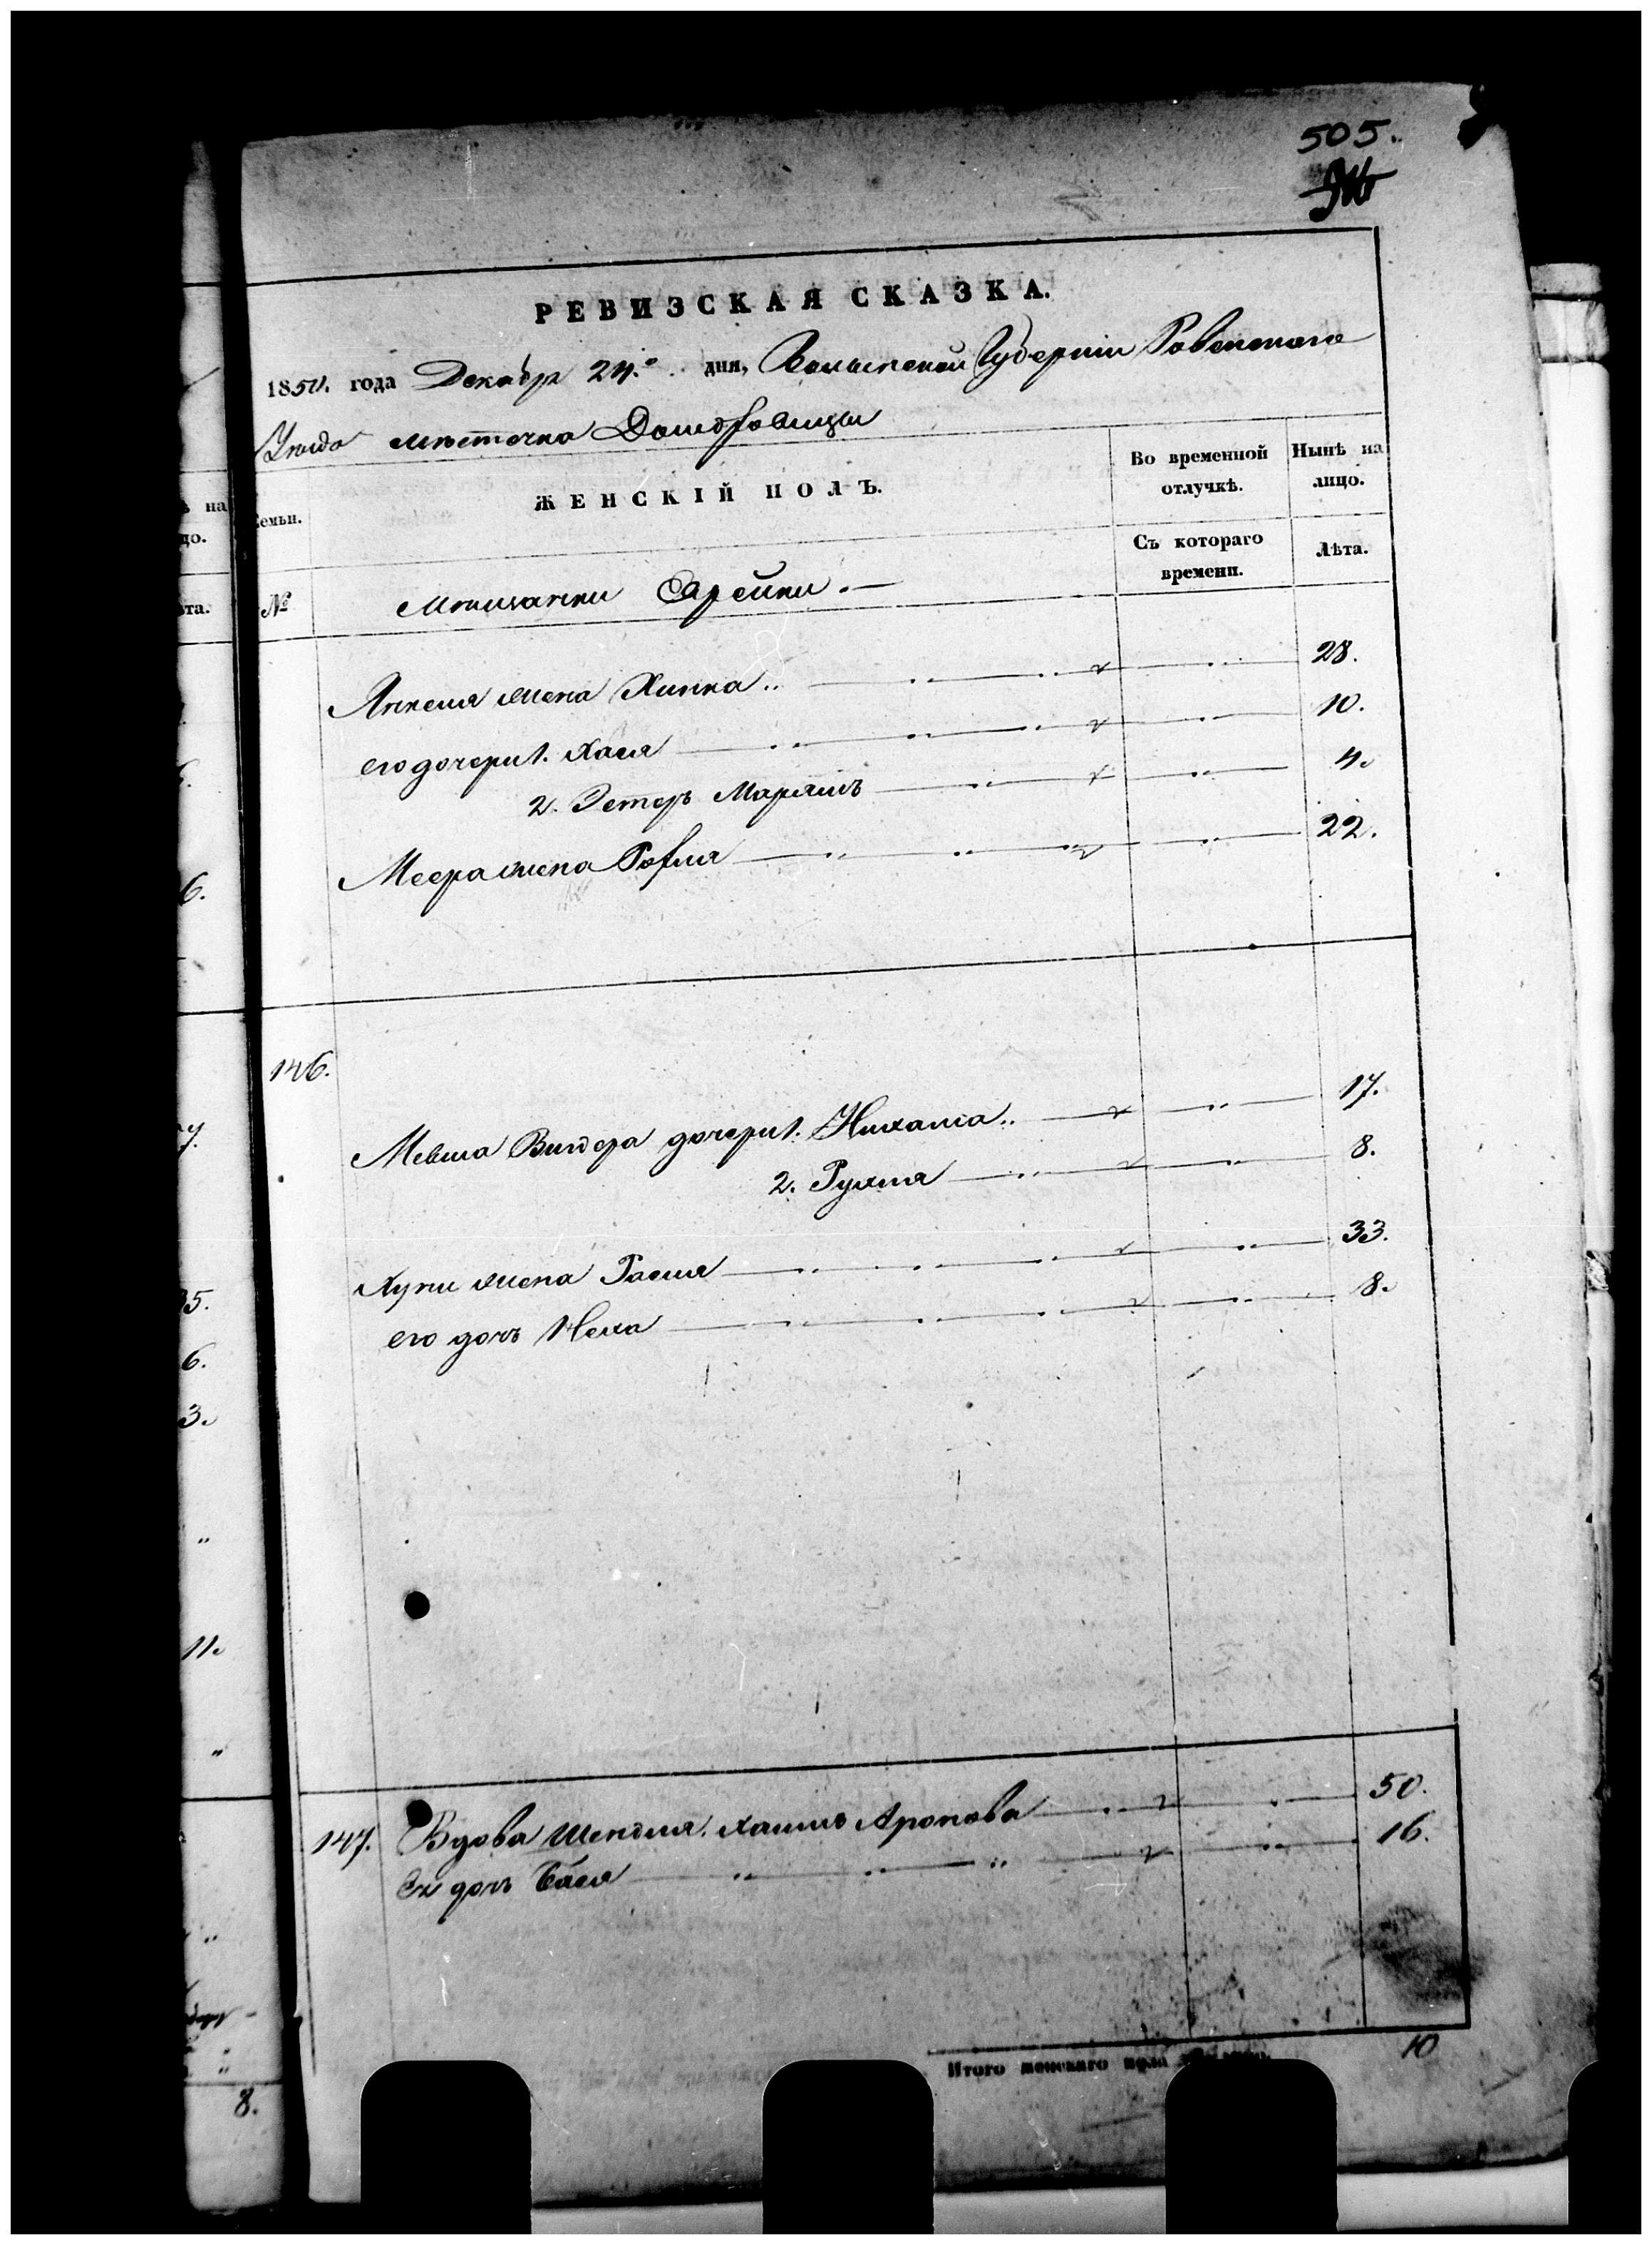 505.
РЕВИЗСКАЯ СКАЗКА.
1850. года Декабр 24.º дня, Волынской Губерніи Ровенскаго
Уезда мѣстечка Домбровицы
Семьи.
ЖЕНСКІЙ ПОЛЪ.
Во временной отлучкѣ.
Нынѣ на лицо.
Съ котораго времени.
Лѣта.
№
Мѣщанки Еврейки.
Янкеля жена Хинка 28.
его дочери 1. Хася 10.
2. Эстеръ Маріямъ 4.
Меера жена Рейзля 22.
146.
Мевша Виндера дочери 1. 17.
2. Рухля 8.
жена Расля 33.
его дочь Неха 8.
147. Вдова Шендля Хаимъ Аронова 50.
Ея дочь Бася 16.
Итого женскаго пола 10
ь на
до.
ѣта.
6.
7.
35.
6.
3.
11.
8.